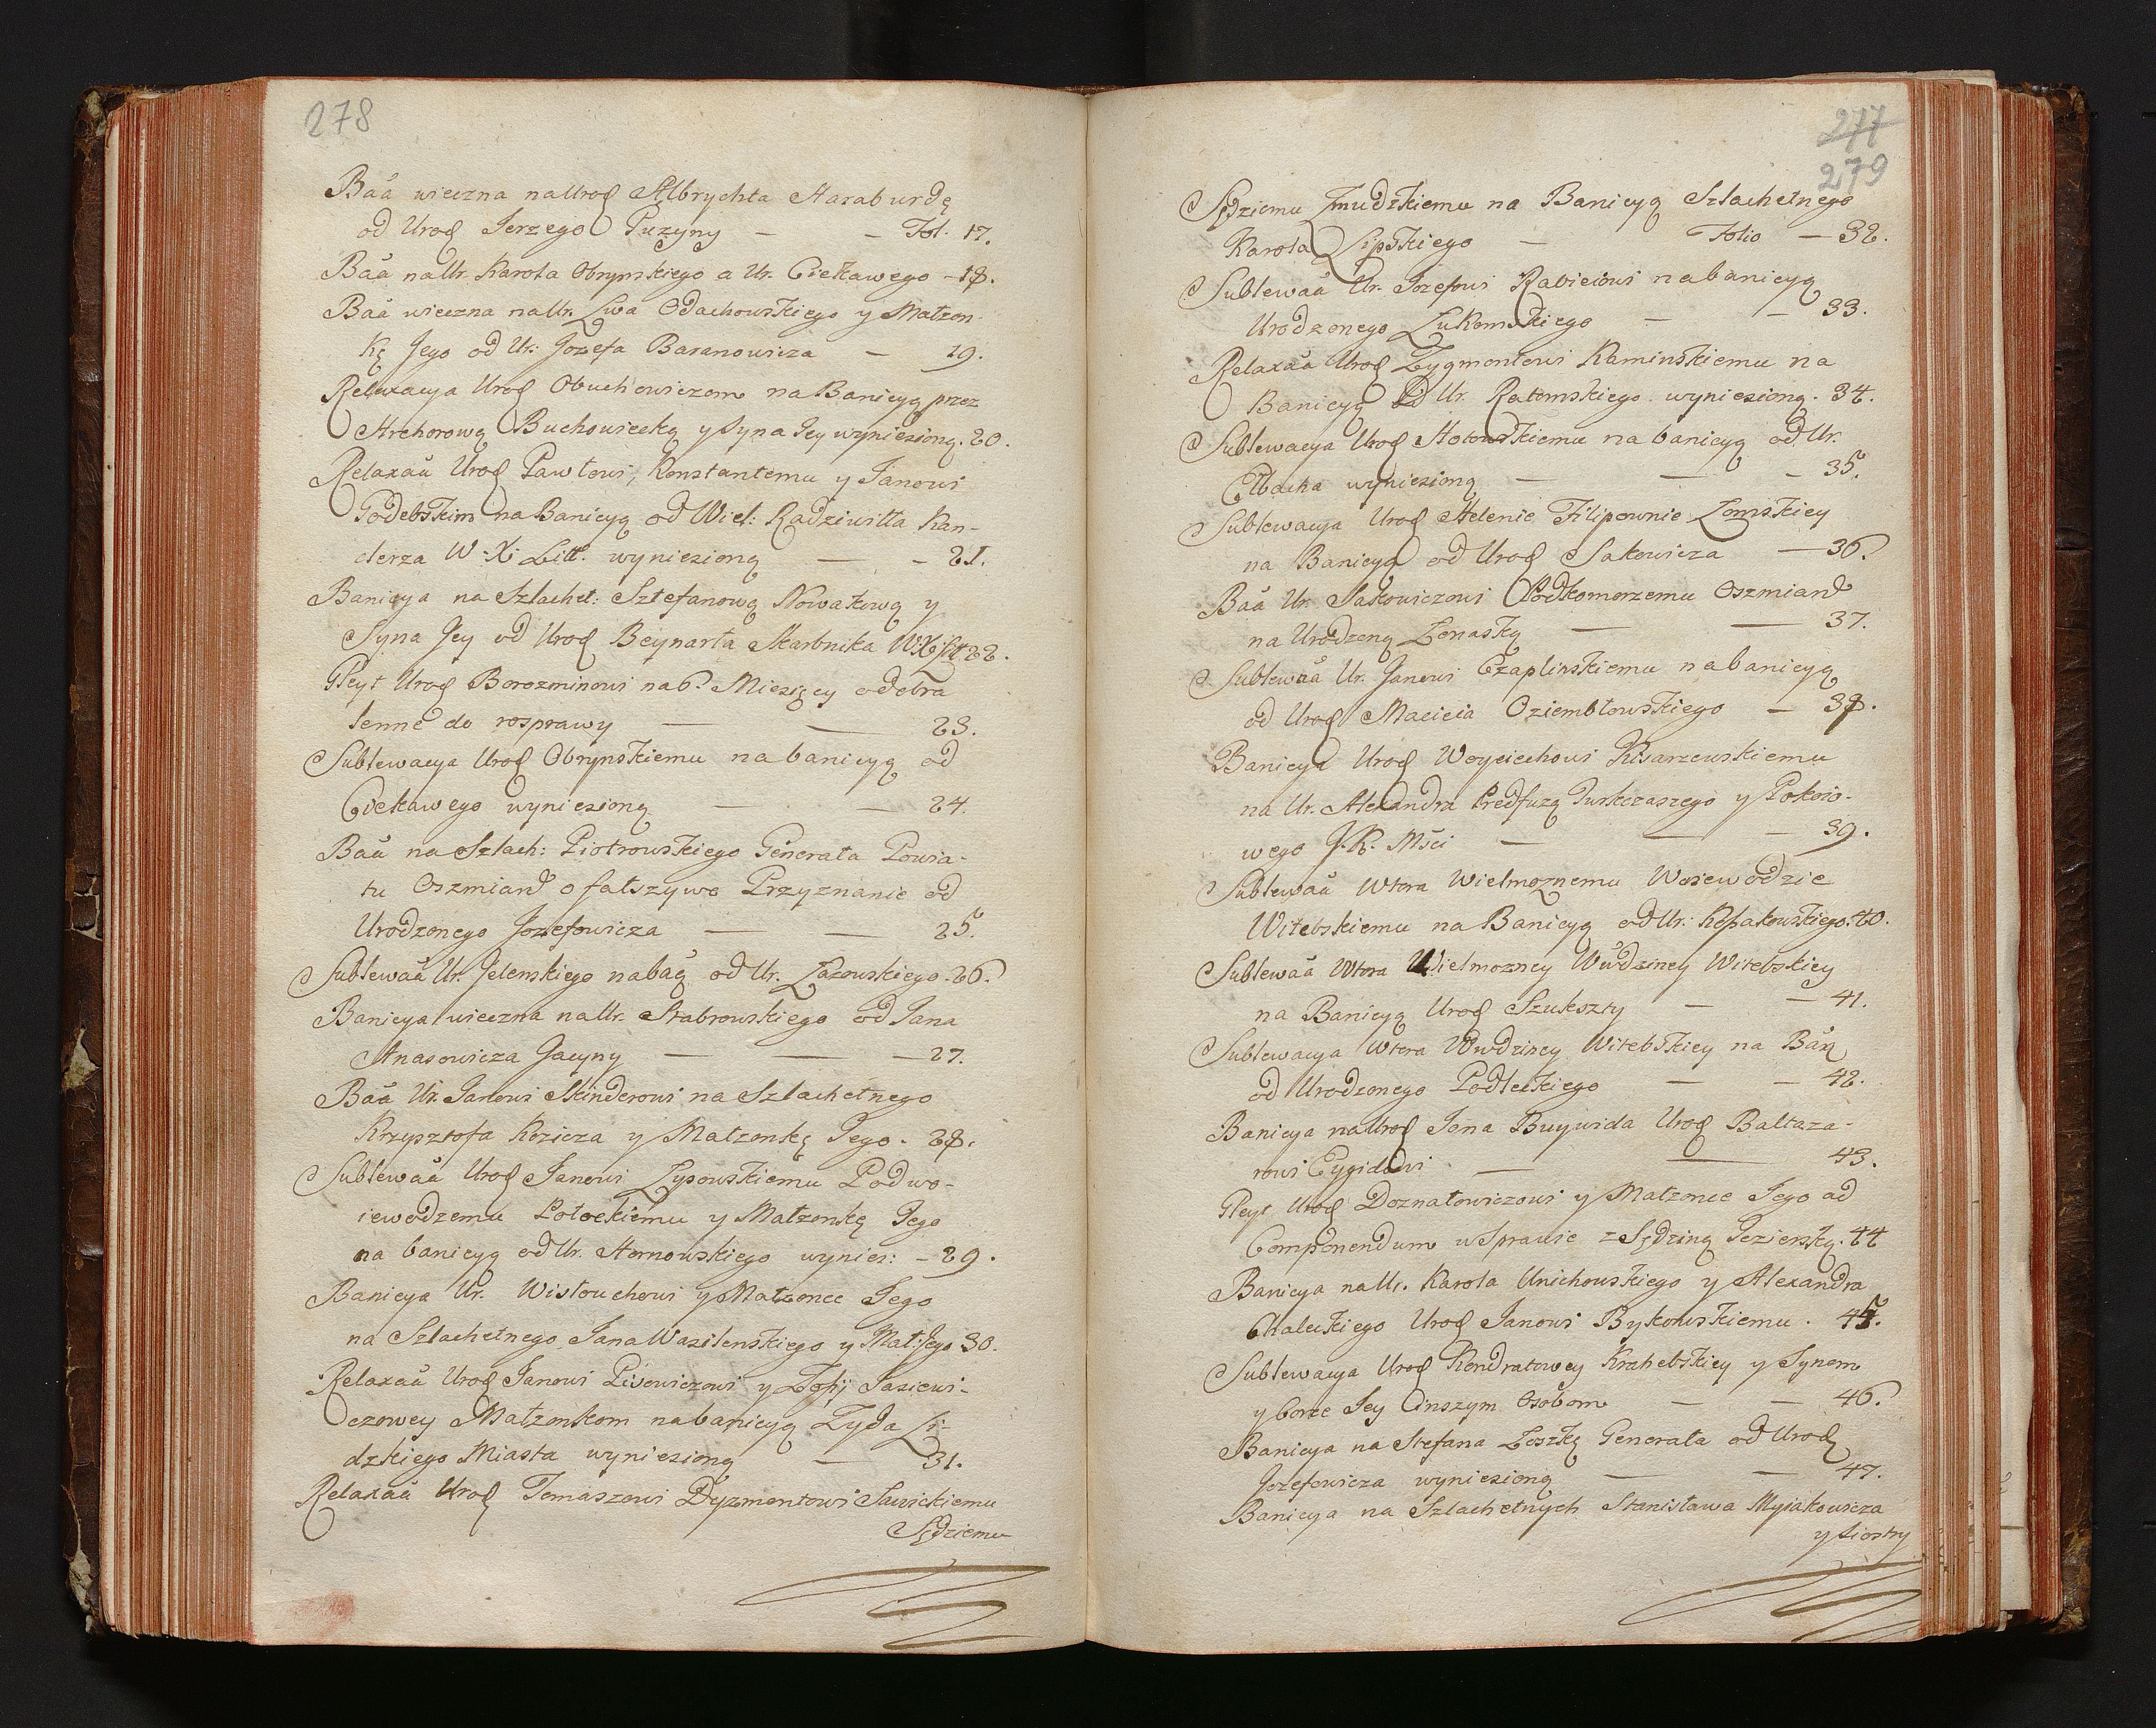 278
Baã wieczna na Urod Albrychta Haraburdę
od Urod Jerzego Puzyny — — Fol. 17.
Baã na Ur. Karola Obrynskiego a Ur. Ciekawego - 18.
Baã wieczna na Ur. Lwa Odachowskiego y Małzon-
kę Jego od Ur: Jozefa Baranowicza — 19.
Relaxacya Urod Obuchowiczom na Banicyą przez
Archorową Buchowiecką y Syna Jey wyniesioną. 20.
Relaxaã Urod Pawłowi, Konstantemu y Janowi
Godebskim na Banicyą od Wiel: Radziwiłła Kan-
clerza W: X: Litt. wyniesioną — - 21.
Banicya na Szlachet: Sztefanową Nowakową y
Syna Jey od Urod Beynarta Skarbnika WXlitt 22.
Gleyt Urod Borozminowi na 6. Miesięcy od elra
lenne do rosprawy — — 23.
Sublewacya Urod Obrynskiemu na banicyą od
Ciekawego wyniesioną — — 24.
Baã na Szlach: Piotrowskiego Generała Powia-
tu Oszmian o fałszywe Przyznanie od
Urodzonego Jozefowicza — — 25.
Sublewaã Ur. Jelenskiego na baą od Ur. Lazowskiego. 26.
Banicya wieczna na Ur. Strabrowskiego od Jana
Anasowicza Gacyny — — — 27.
Baã Ur. Janowi Skinderowi na Szlachetnego
Krzysztofa Kozicza y Małzonkę Jego. 28.
Sublewaã Urod Janowi Łysowskiemu Podwo-
iewodzemu Połockiemu y Małzonkę Jego
na banicyą od Ur. Hornowskiego wynies: - 29.
Banicya Ur. Wisłouchowi y Małzonce Jego
na Szlachetnego Jana Wasilenskiego y Mał: Jego 30.
Relaxaã Urod Janowi Piiowiczowi y Zofij Jasiewi-
czowey Małzonkom na banicyą Zyda Li-
dzkiego Miasta wyniesioną — 31.
Relaxaã Urod Tomaszowi Dyzmontowi Sawickiemu
Sędziemu
277
279
Sędziemu Zmudzkiemu na Banicyą Szlachetnego
Karola Lipskiego — Folio — 32.
Sublewaã Ur. Jozefowi Rabieiowi na banicyą
Urodzonego Łukomskiego — — 33.
Relaxaã Urod Zygmontowi Kaminskiemu na
Banicyą od Ur. Ratomskiego wyniesioną. 34.
Sublewacya Urod Hotowskiemu na banicyą od Ur.
Elbacha wyniesioną — — — 35.
Sublewacya Urod Helenie Filipownie Łomskiey
na Banicyą od Urod Sakowicza — 36.
Baã Ur. Sakowiczowi Podkomorzemu Oszmian
na Urodzoną Zenaską — — 37.
Sublewaã Ur. Janowi Czaplinskiemu na banicyą
od Urod Macieia Oziembłowskiego — 38.
Banicya Urod Woyciechowi Kisarzewskiemu
na Ur. Alexandra Predfuzą Turkczaszego y Pokoio-
wego J. K. Mści — — — 39.
Sublewaã Wtora Wielmoznemu Woiewodzie
Witebskiemu na Banicyą od Ur. Kossakowskiego. 40.
Sublewaã Wtora Wielmozney Wudziney Witebskiey
na Banicyą Urod Szukszty — — 41.
Sublewacya Wtora Wwdziney Witebskiey na Baą
od Urodzonego Podleckiego — — 42.
Banicya na Urod Jana Buywida Urod Baltaza-
rowi Eygirdowi — — 43.
Gleyt Urod Doznałowiczowi y Małzonce Jego ad
Componendum w Sprawie z Sędziną Jezierską. 44
Banicya na Ur. Karola Unichowskiego y Alexandra
Chaleckiego Urod Janowi Bykowskiemu. 45.
Sublewacya Urod Kondratowey Krzhebskiey y Synom
y Corce Jey Inszym Osobom — — 46.
Banicya na Stefana Zeszkę Generała od Urod
Jozefowicza wyniesioną — — 47.
Banicya na Szlachetnych Stanisława Myiakowicza
y Siostry